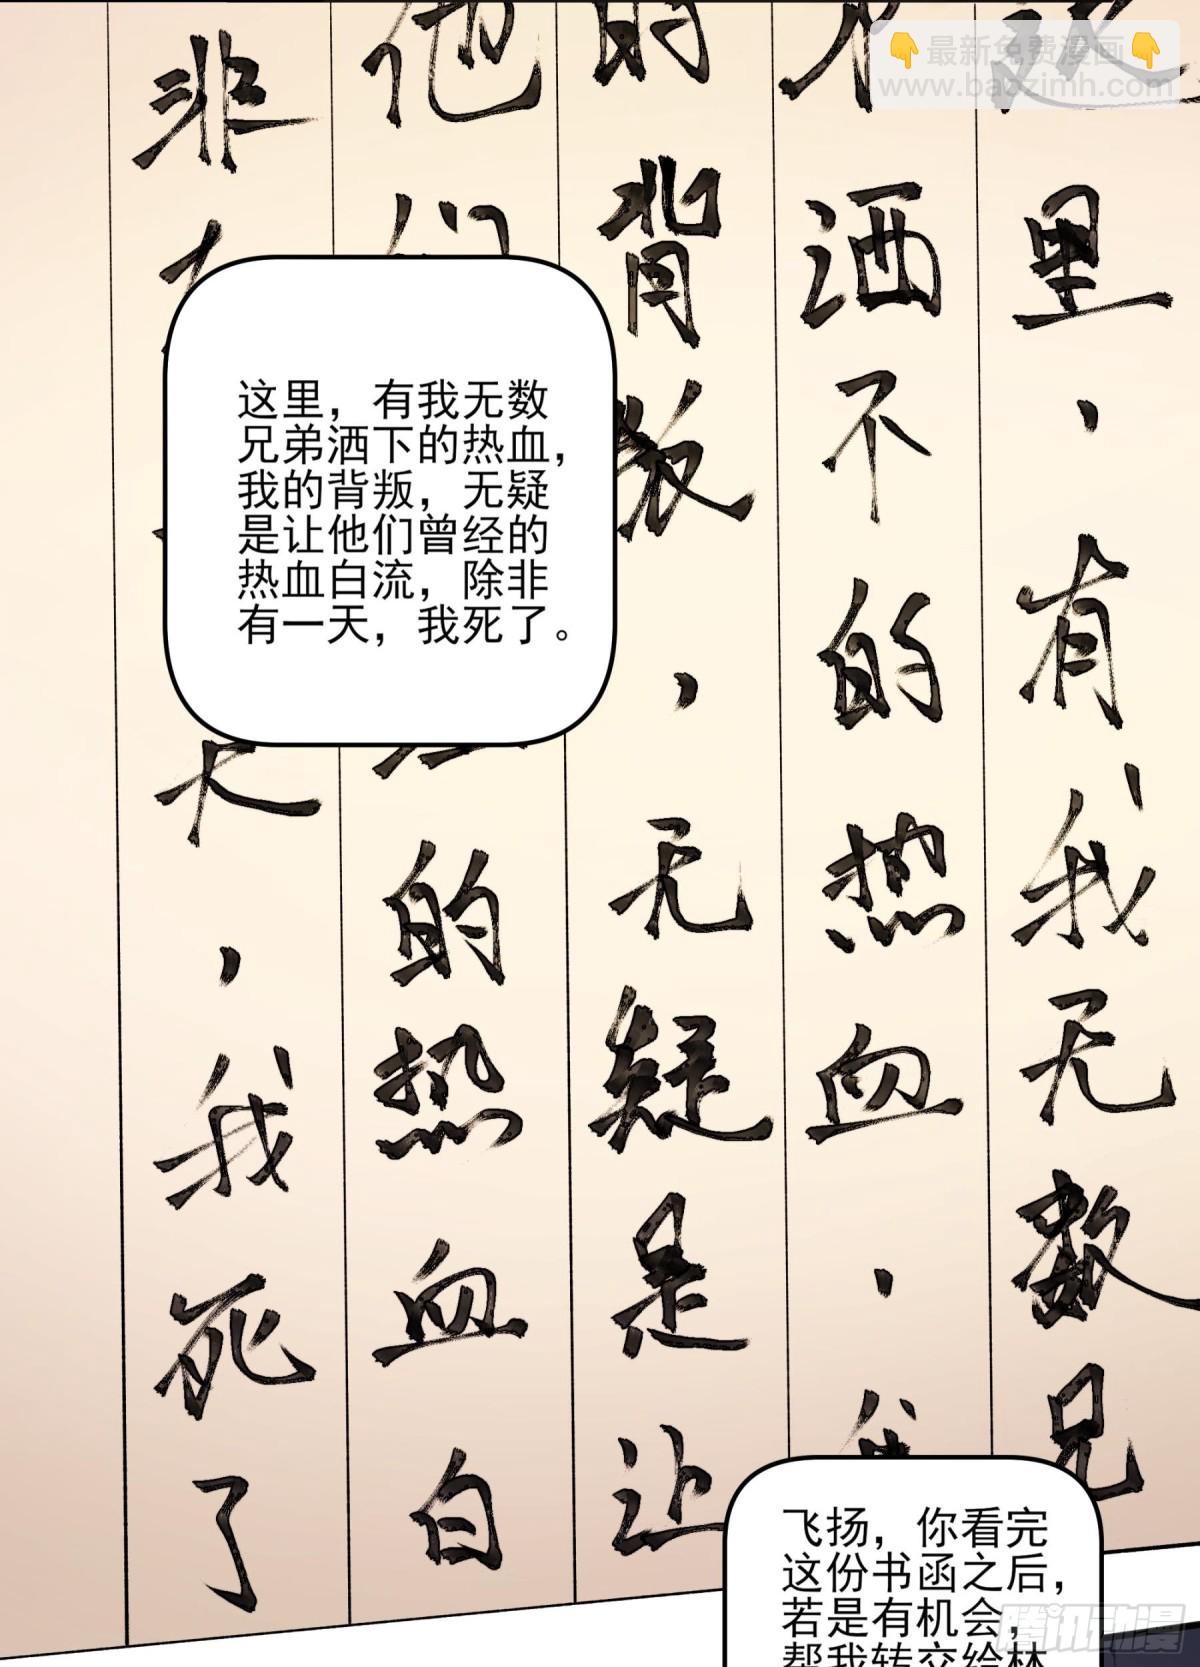 最新免费漫画
www.baozimh.com
里，有我无数兄
洒不的热血，我
的背叛，无疑是让
他们
的热血白
非
天，我死了
这里，有我无数
兄弟洒下的热血，
我的背叛，无疑
是让他们曾经的
热血白流，除非
有一天，我死了。
飞扬，你看完
这份书函之后，
若是有机会，
帮我转交给林
腾讯动漫